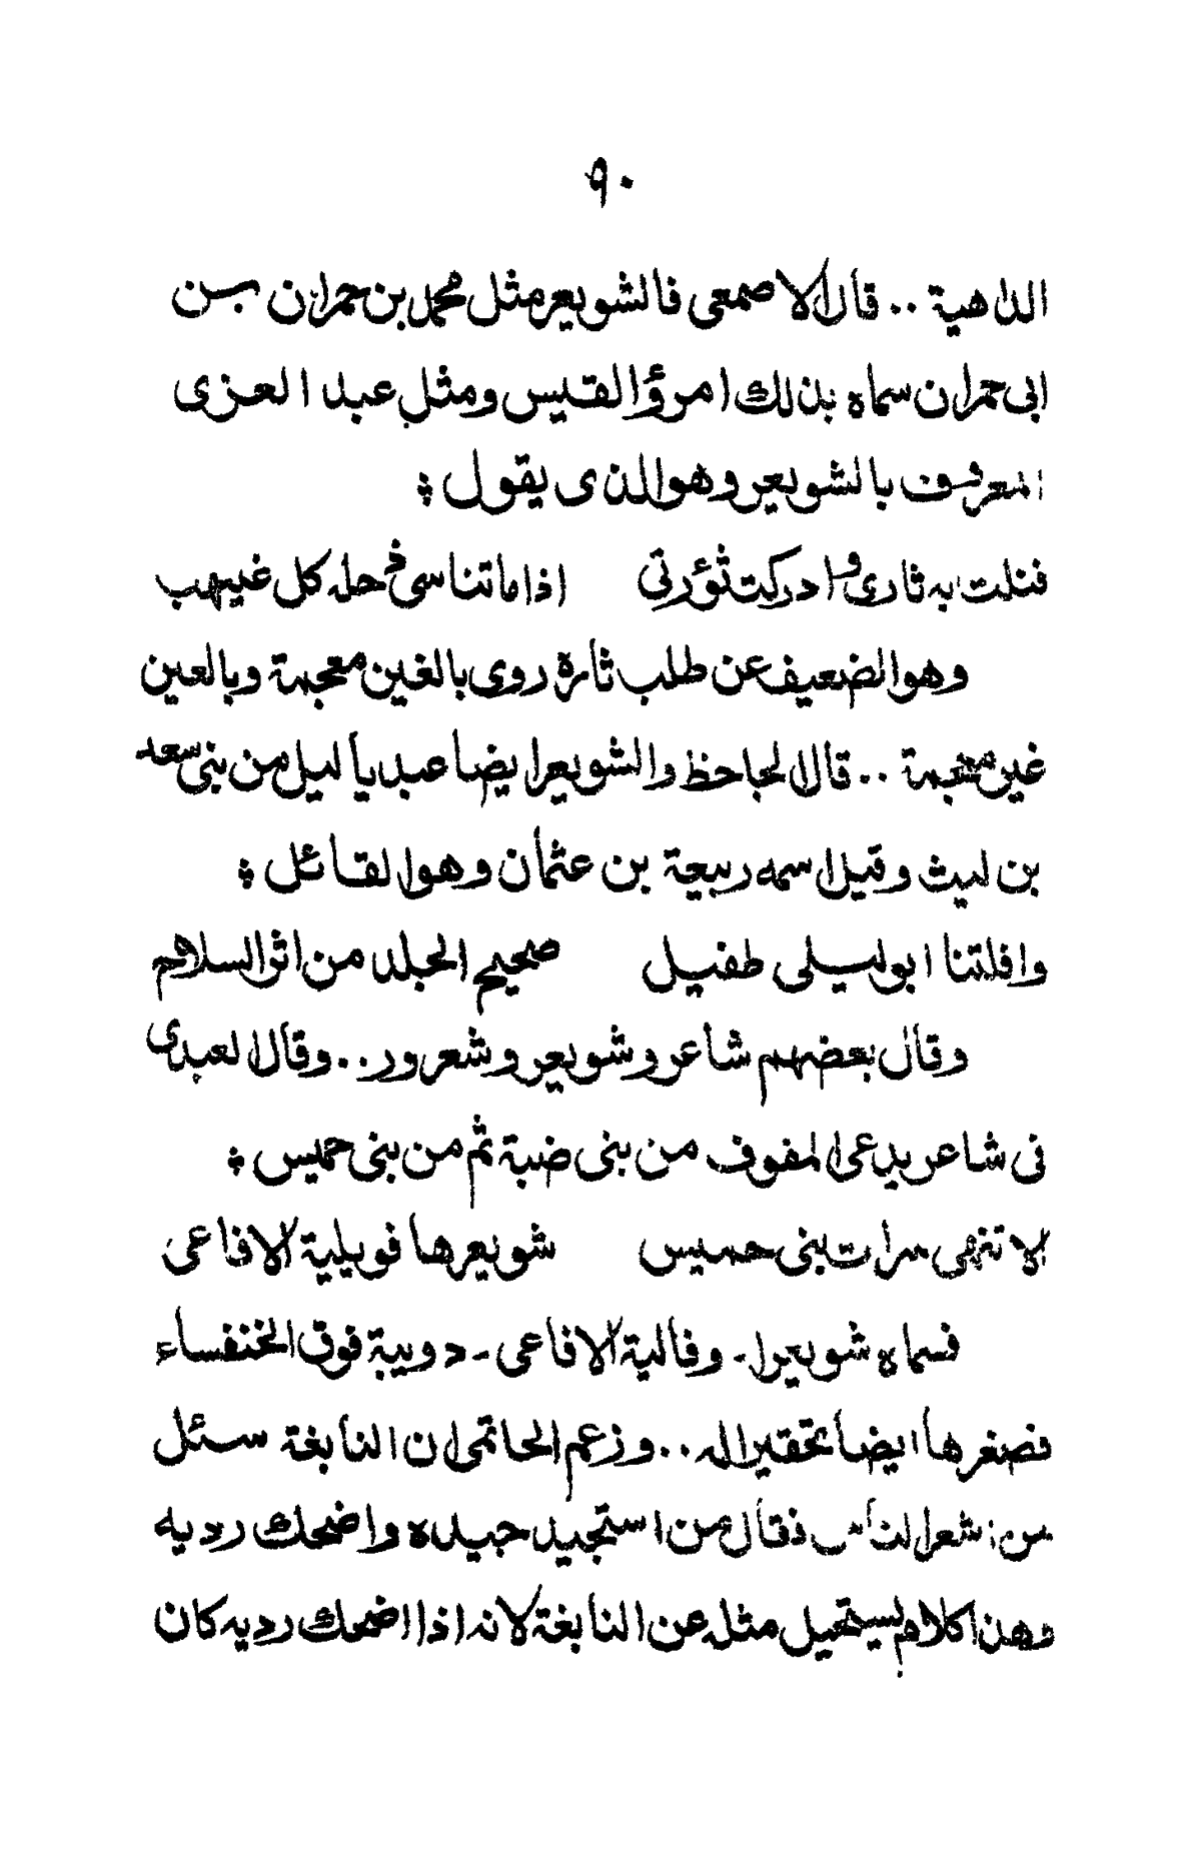 ٩٠
الداهية .. قال الاصمعى فالشويعر مثل محمد بن حمران بن
ابى حمران سماه بذلك امرؤ القيس ومثل عبد العزى
المعروف بالشويعر وهو الذى يقول ؞
فنلت به ثارى وادركت ثؤرتى اذا ما تناسى ذحله كل غيهب
وهو الضعيف عن طلب ثاره روى بالغين معجمة وبالعين
غين معجمة .. قال الجاحظ والشويعر ايضا عبد ياليل من بنى سعد
بن ليث وقيل اسمه ربيعة بن عثمان وهو القائل ؞
وافلتنا ابو ليلى طفيل صحيح الجلد من اثر السلاح
وقال بعضهم شاعر وشويعر وشعرور .. وقال العبدى
فى شاعر يدعى المفوف من بنى ضبة ثم من بنى حميس ؞
الا تنهى سرات بنى حميس شويعرها فويلية الافاعى
فسماه شويعرا - وفالية الافاعى - دويبة فوق الخنفساء
فصغرها ايضا تحقيرا له .. وزعم الحاتمى ان النابغة سئل
من اشعر الناس فقال من استجيد جيده واضحك رديه
وهذا كلام يستحيل مثله عن النابغة لانه اذا اضحك رديه كان